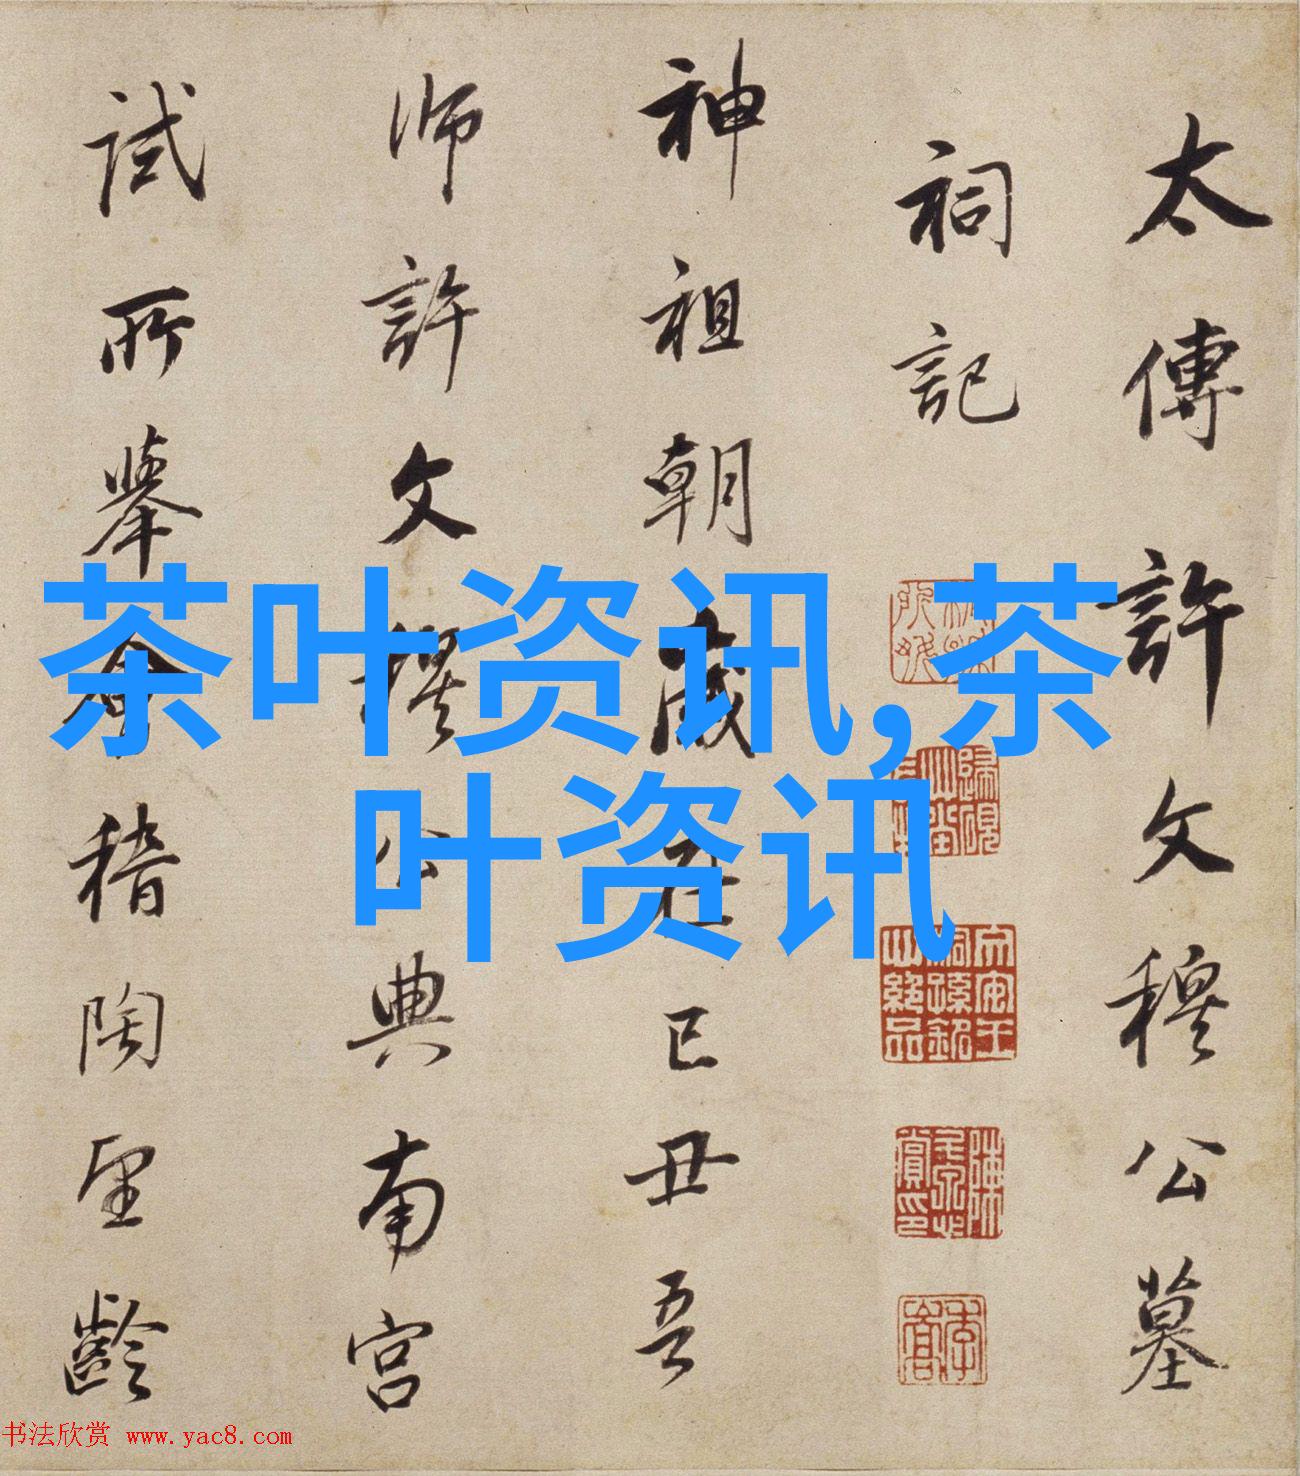 太傅許文穆公墓
祠記
神祖朝歲在已丑吾
師許文穆公典南宮
試所舉會稽陶望齡
茶叶资讯,茶
叶资讯
书法欣赏 www.yac8.com